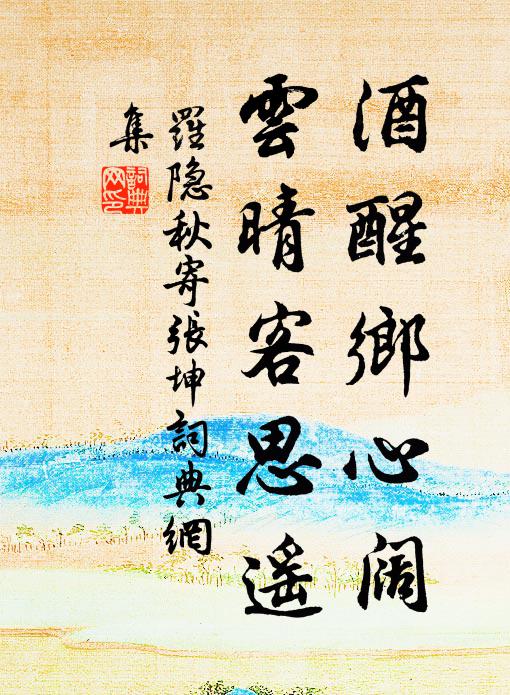 酒醒鄉心阔
雲晴客思遥
羅隐秋寄張坤詞典網
集
詞典网印